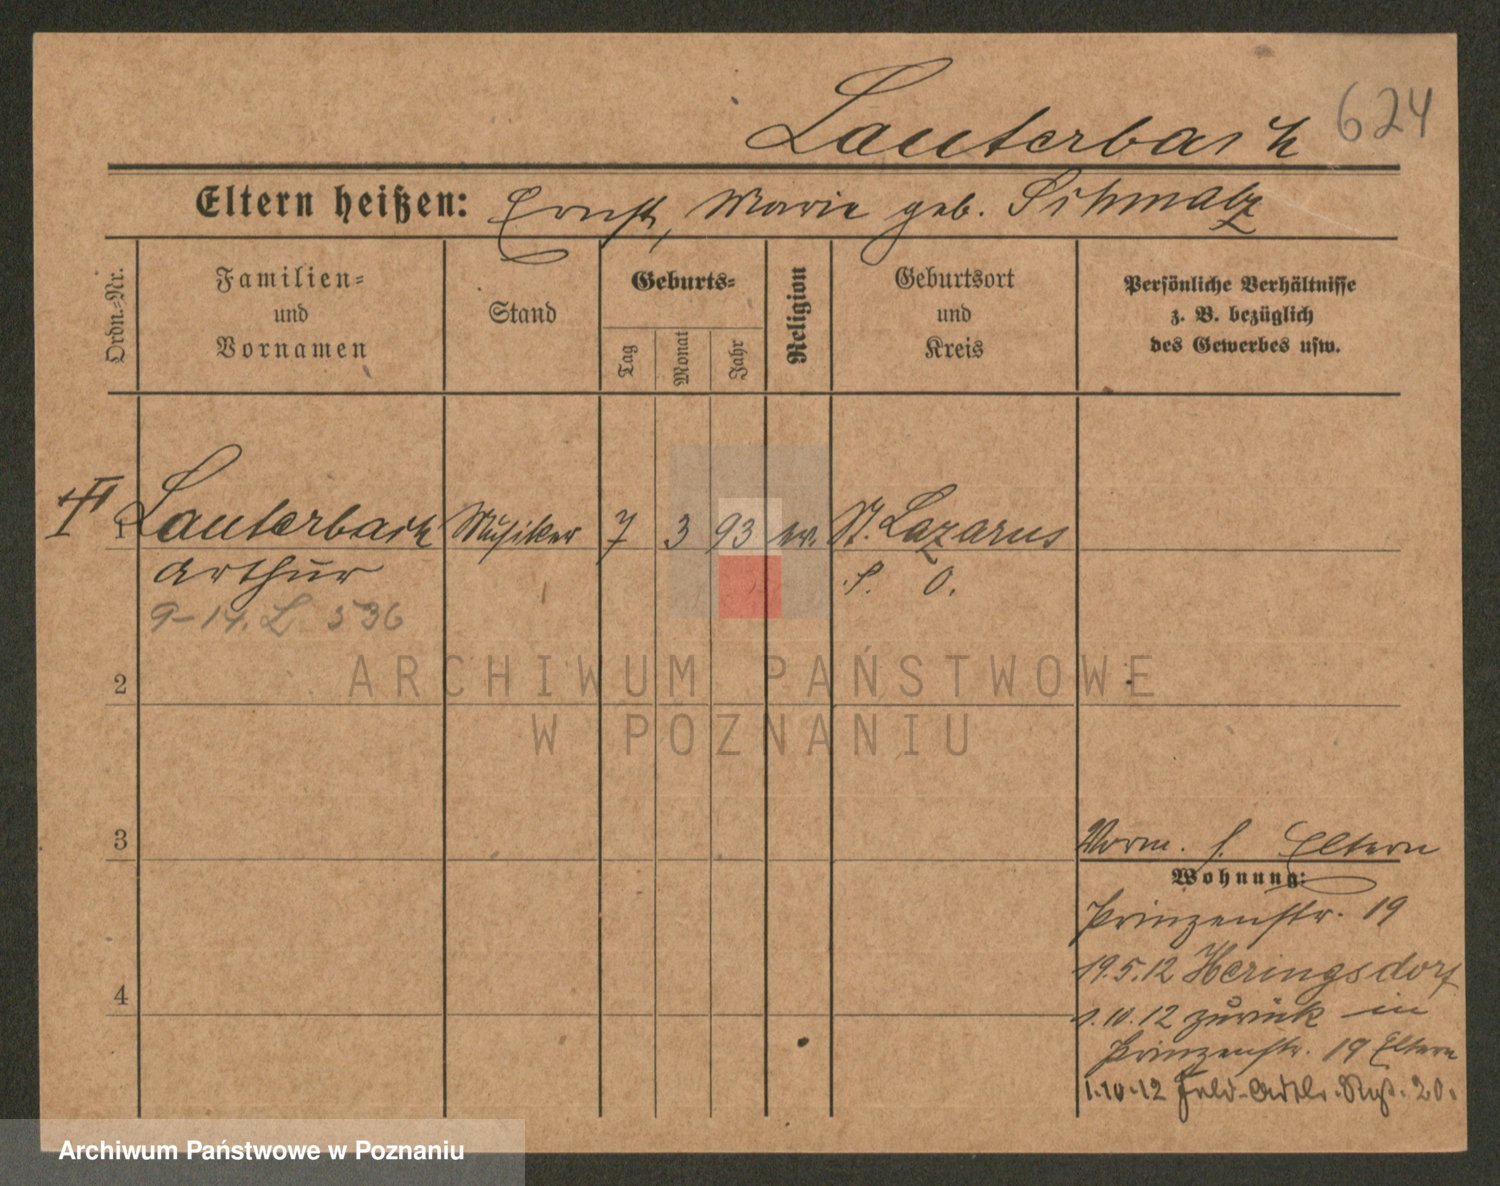 Lauterbach 624
Eltern heißen: Ernst, Marie geb. Schmalz
Ordn.-Nr.
Familien-
und
Vornamen
Stand
Geburts-
Tag
Monat
Jahr
Religion
Geburtsort
und
Kreis
Persönliche Verhältnisse
z. B. bezüglich
des Gewerbes usw.
1 Lauterbach Musiker 7 3 93 ev. St. Lazarus
Arthur P. O.
9-14. L 536
2
3
4
Vorm. s. Eltern
Wohnung:
Prinzenstr. 19
19.5.12 Heringsdorf
1.10.12 zurück in
Prinzenstr. 19 Eltern
1.10.12 Feld-Artlr. Rgt. 20.
ARCHIWUM PAŃSTWOWE
W POZNANIU
Archiwum Państwowe w Poznaniu